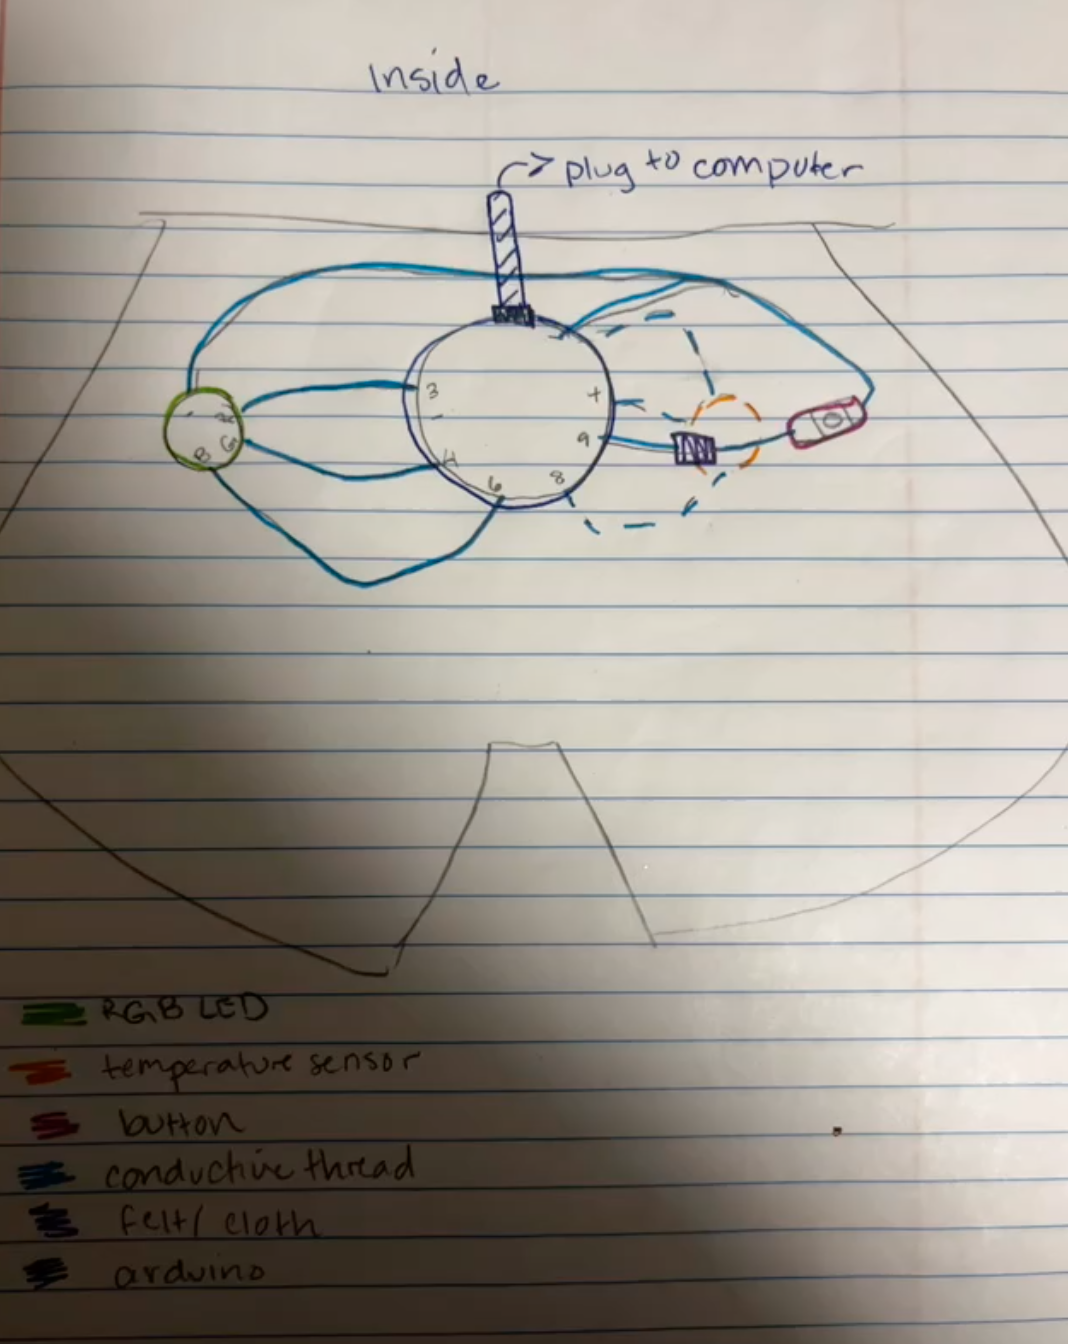 Inside
plug to computer
3
+
-
-
R
9
G
B
4
8
6
RGB LED
temperature sensor
button
conductive thread
felt/ cloth
arduino